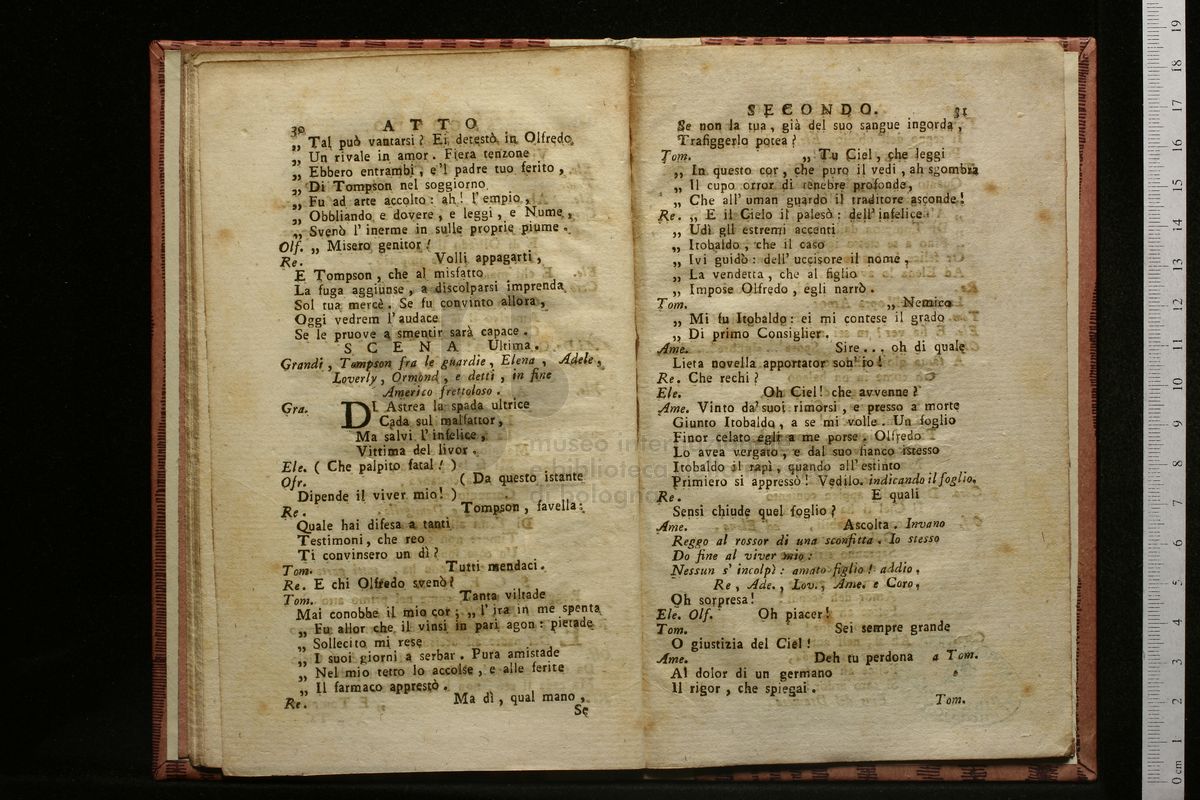 30 ATTO
„ Tal può vantarsi? Ei detestò in Olfredo
„ Un rivale in amor. Fiera tenzone
„ Ebbero entrambi, e'l padre tuo ferito,
„ Di Tompson nel soggiorno
„ Fu ad arte accolto: ah! l'empio,
„ Obbliando e dovere, e leggi, e Nume,
„ Svenò l'inerme in sulle proprie piume.
Olf. „ Misero genitor!
Re. Volli appagarti,
E Tompson, che al misfatto
La fuga aggiunse, a discolparsi imprenda
Sol tua mercè. Se fu convinto allora,
Oggi vedrem l'audace
Se le pruove a smentir sarà capace.
SCENA Ultima.
Grandi, Tompson fra le guardie, Elena, Adele,
Loverly, Ormond, e detti, in fine
Americo frettoloso.
Gra. DI Astrea la spada ultrice
Cada sul malfattor,
Ma salvi l'infelice,
Vittima del livor.
Ele. ( Che palpito fatal! )
Ofr. ( Da questo istante
Dipende il viver mio! )
Re. Tompson, favella:
Quale hai difesa a tanti
Testimoni, che reo
Ti convinsero un dì?
Tom. Tutti mendaci.
Re. E chi Olfredo svenò?
Tom. Tanta viltade
Mai conobbe il mio cor; „ l'ira in me spenta
„ Fu allor che il vinsi in pari agon: pietade
„ Sollecito mi rese
„ I suoi giorni a serbar. Pura amistade
„ Nel mio tetto lo accolse, e alle ferite
„ Il farmaco apprestò.
Re. Ma dì, qual mano,
Se
SECONDO. 31
Se non la tua, già del suo sangue ingorda,
Trafiggerlo potea?
Tom. „ Tu Ciel, che leggi
„ In questo cor, che puro il vedi, ah sgombra
„ Il cupo orror di tenebre profonde,
„ Che all'uman guardo il traditore asconde!
Re. „ E il Cielo il palesò: dell'infelice
„ Udì gli estremi accenti
„ Itobaldo, che il caso
„ Ivi guidò: dell'uccisore il nome,
„ La vendetta, che al figlio
„ Impose Olfredo, egli narrò.
Tom. „ Nemico
„ Mi fu Itobaldo: ei mi contese il grado
„ Di primo Consiglier.
Ame. Sire... oh di quale
Lieta novella apportator son'io!
Re. Che rechi?
Ele. Oh Ciel! che avvenne?
Ame. Vinto da'suoi rimorsi, e presso a morte
Giunto Itobaldo, a se mi volle. Un foglio
Finor celato egli a me porse. Olfredo
Lo avea vergato, e dal suo fianco istesso
Itobaldo il rapì, quando all'estinto
Primiero si appressò! Vedilo. indicando il foglio.
Re. E quali
Sensi chiude quel foglio?
Ame. Ascolta. Invano
Reggo al rossor di una sconfitta. Io stesso
Do fine al viver mio:
Nessun s'incolpì: amato figlio! addio.
Re, Ade., Lov., Ame. e Coro,
Oh sorpresa!
Ele. Olf. Oh piacer!
Tom. Sei sempre grande
O giustizia del Ciel!
Ame. Deh tu perdona a Tom.
Al dolor di un germano
Il rigor, che spiegai.
Tom.
museo inter
e biblioteca
di bologna
0 cm 1 2 3 4 5 6 7 8 9 10 11 12 13 14 15 16 17 18 19